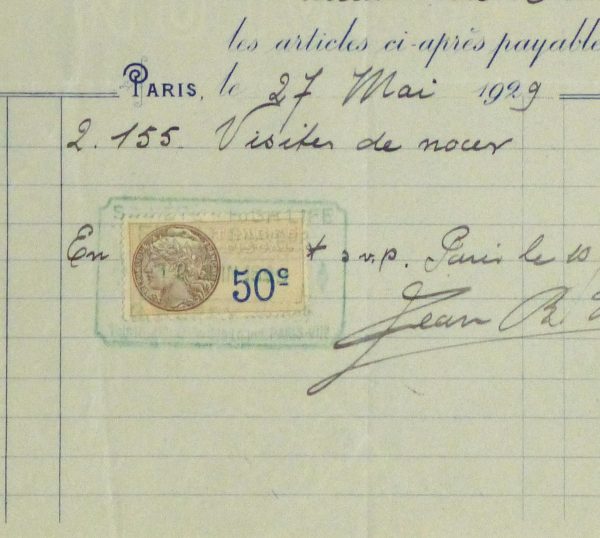 les articles ci-après payable
PARIS, le 27 Mai 1929
2.155. Visites de noces
En
50c
s.v.p. Paris le 10
Jean B